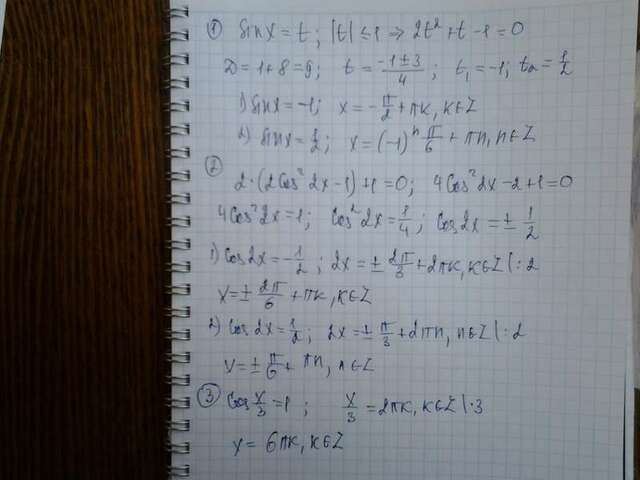 ① sinx = t; |t| ≤ 1 ⇒ 2t² + t - 1 = 0
D = 1 + 8 = 9; t = (-1 ± 3)/4; t₁ = -1; t₂ = 1/2
1) sinx = -1; x = -π/2 + πk, k∈Z
2) sinx = 1/2; x = (-1)ⁿ π/6 + πn, n∈Z
② 2·(2cos²2x - 1) + 1 = 0; 4cos²2x - 2 + 1 = 0
4cos²2x = 1; cos²2x = 1/4; cos2x = ± 1/2
1) cos2x = -1/2; 2x = ± 2π/3 + 2πk, k∈Z |:2
x = ± 2π/6 + πk, k∈Z
2) cos2x = 1/2; 2x = ± π/3 + 2πn, n∈Z |:2
x = ± π/6 + πn, n∈Z
③ cos x/3 = 1; x/3 = 2πk, k∈Z |·3
x = 6πk, k∈Z